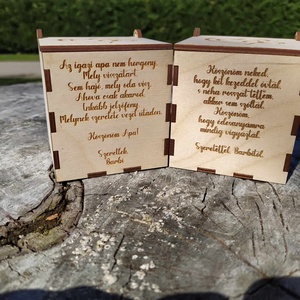 Az igazi apa nem horgony,
Mely visszatart.
Sem hajó, mely oda visz,
Ahova csak akarod.
Inkább jelzőfény
Melynek szeretete vezet utadon.
Köszönöm Apa!
Szeretlek,
Barbi
Köszönöm neked,
hogy két kezeddel óvtál,
s néha rosszat tettem,
akkor sem szóltál.
Köszönöm,
hogy édesanyámra
mindig vigyáztál.
Szeretettel, Barbitól